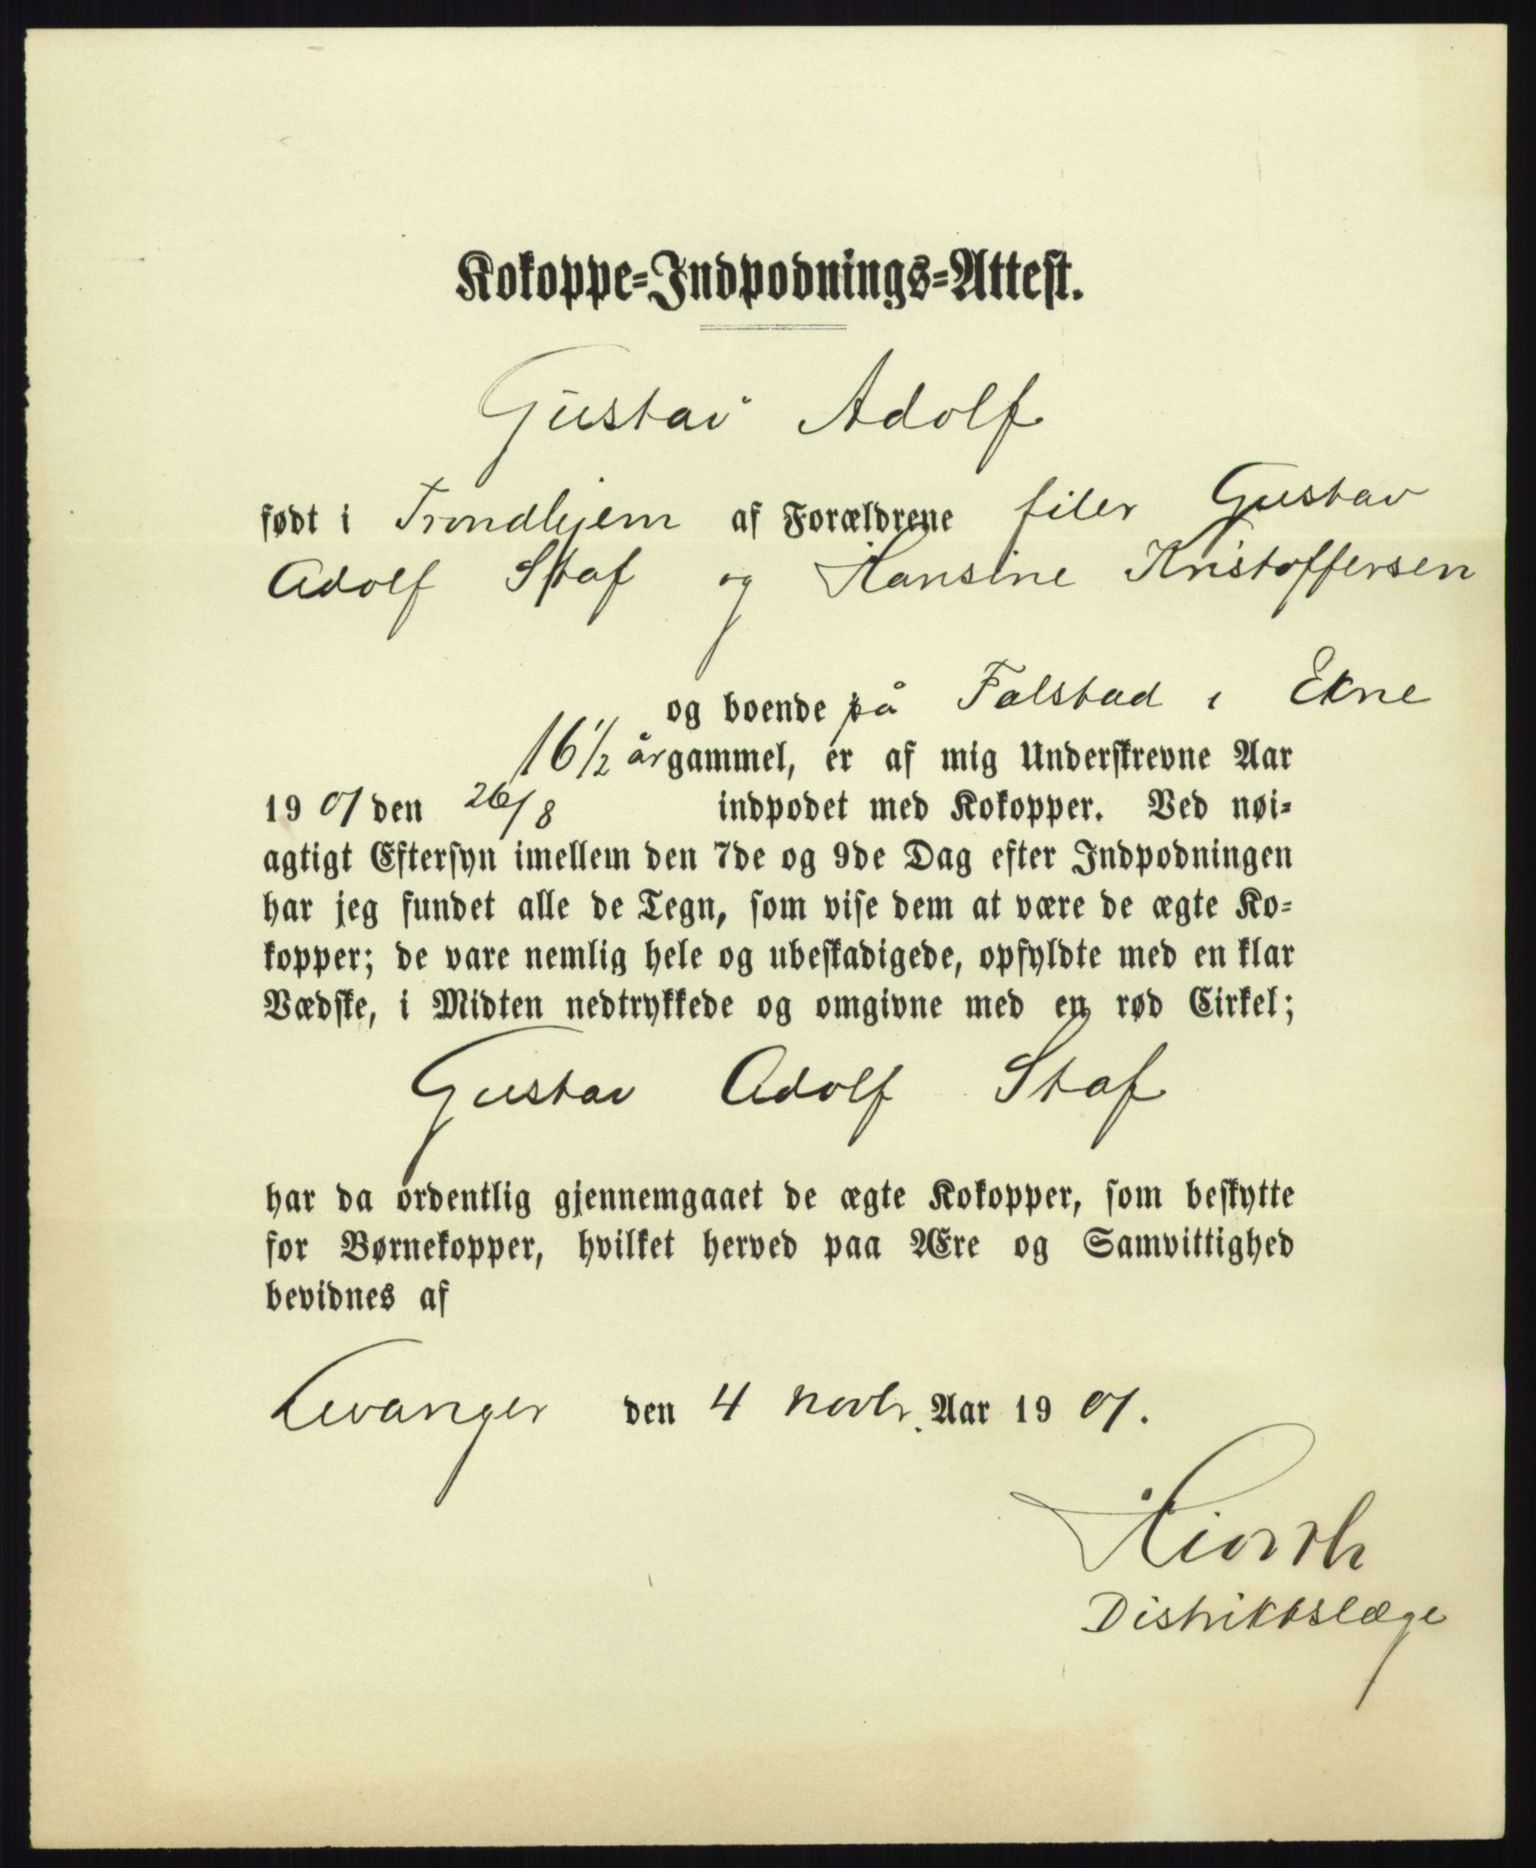 Kokoppe=Indpodnings=Attest.
Gustav Adolf
født i Trondhjem af Forældrene filer Gustav
Adolf Staf og Hansine Kristoffersen
og boende på Falstad i Ekne
16 1/2 årgammel, er af mig Underskrevne Aar
19 01 den 26/8 indpodet med Kokopper. Ved nøi=
agtigt Eftersyn imellem den 7de og 9de Dag efter Indpodningen
har jeg fundet alle de Tegn, som vise dem at være de ægte Ko=
kopper; de vare nemlig hele og ubeskadigede, opfyldte med en klar
Vædske, i Midten nedtrykkede og omgivne med en rød Cirkel;
Gustav Adolf Staf
har da ordentlig gjennemgaaet de ægte Kokopper, som beskytte
for Børnekopper, hvilket herved paa Ære og Samvittighed
bevidnes af
Levanger den 4 novbr. Aar 19 01.
Hiorth
Distriktslæge